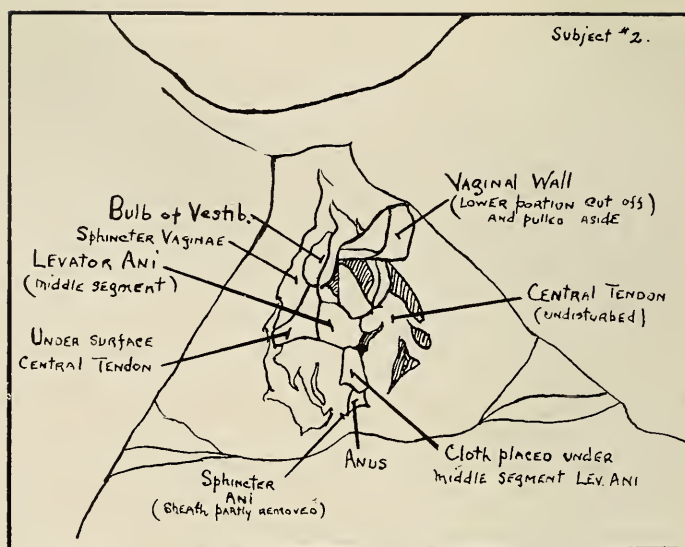 Subject #2.
Vaginal Wall
(Lower portion cut off)
and pulled aside
Bulb of Vestib.
Sphincter Vaginae
Levator Ani
(middle segment)
Central Tendon
(undisturbed)
Under Surface
Central Tendon
Cloth placed under
middle segment Lev. Ani
Anus
Sphincter
Ani
(sheath partly removed)